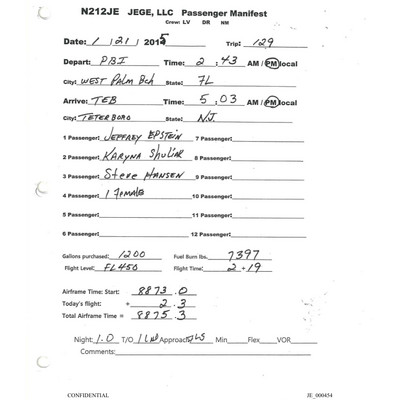 N212JE JEGE, LLC Passenger Manifest
Crew: LV DR NM
Date: 1 / 21 / 2015 Trip: 129
Depart: PBI Time: 2 . 43 AM / PM local
City: WEST PALM BCH State: FL
Arrive: TEB Time: 5 . 03 AM / PM local
City: TETERBORO State: NJ
1 Passenger: JEFFREY EPSTEIN 7 Passenger:
2 Passenger: KARYNA SHULIAK 8 Passenger:
3 Passenger: STEVE HANSEN 9 Passenger:
4 Passenger: 1 FEMALE 10 Passenger:
5 Passenger: 11 Passenger:
6 Passenger: 12 Passenger:
Gallons purchased: 1200 Fuel Burn lbs. 7397
Flight Level: FL450 Flight Time: 2 + 19
Airframe Time: Start: 8873 .0
Today's flight: + 2 . 3
Total Airframe Time = 8875 . 3
Night: 1.0 T/O 1 Lnd Approach ILS Min Flex VOR
Comments:
CONFIDENTIAL JE_000454